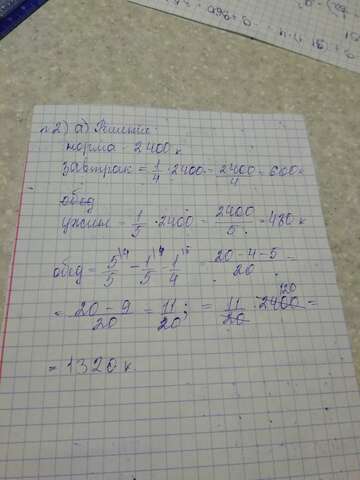 n.2) а) Решение:
норма - 2400 к
завтрак = 1/4 · 2400 = 2400/4 = 600 к
обед
ужин = 1/5 · 2400 = 2400/5 = 480 к
обед = 5/5 - 1/5 - 1/4 = 20-4-5/20 =
= 20-9/20 = 11/20; = 11/20 · 2400 120 =
= 1320 к